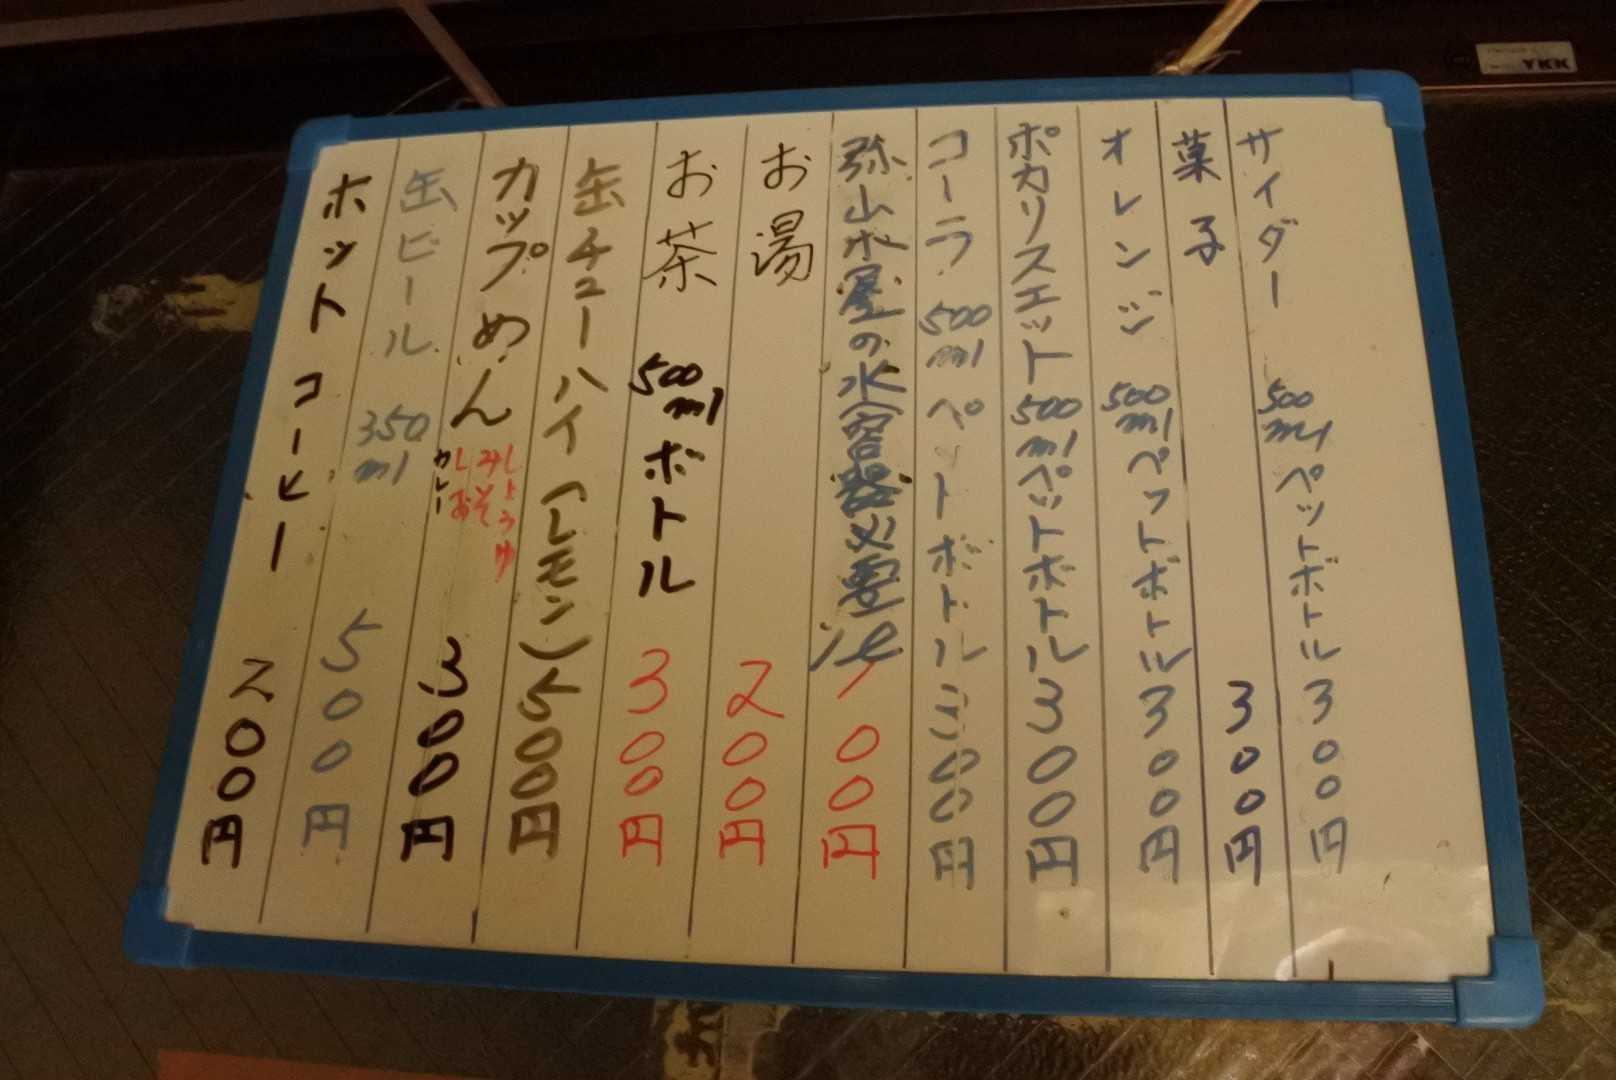 サイダー 500ml ペットボトル 300円
菓子 300円
オレンジ 500ml ペットボトル 300円
ポカリスエット 500ml ペットボトル 300円
コーラ 500ml ペットボトル 300円
弥山小屋の水容器必要 1ℓ 100円
お湯 200円
お茶 500ml ボトル 300円
缶チューハイ(レモン) 500円
カップめん しょうゆ みそ しお カレー 300円
缶ビール 350ml 500円
ホットコーヒー 200円
YKK